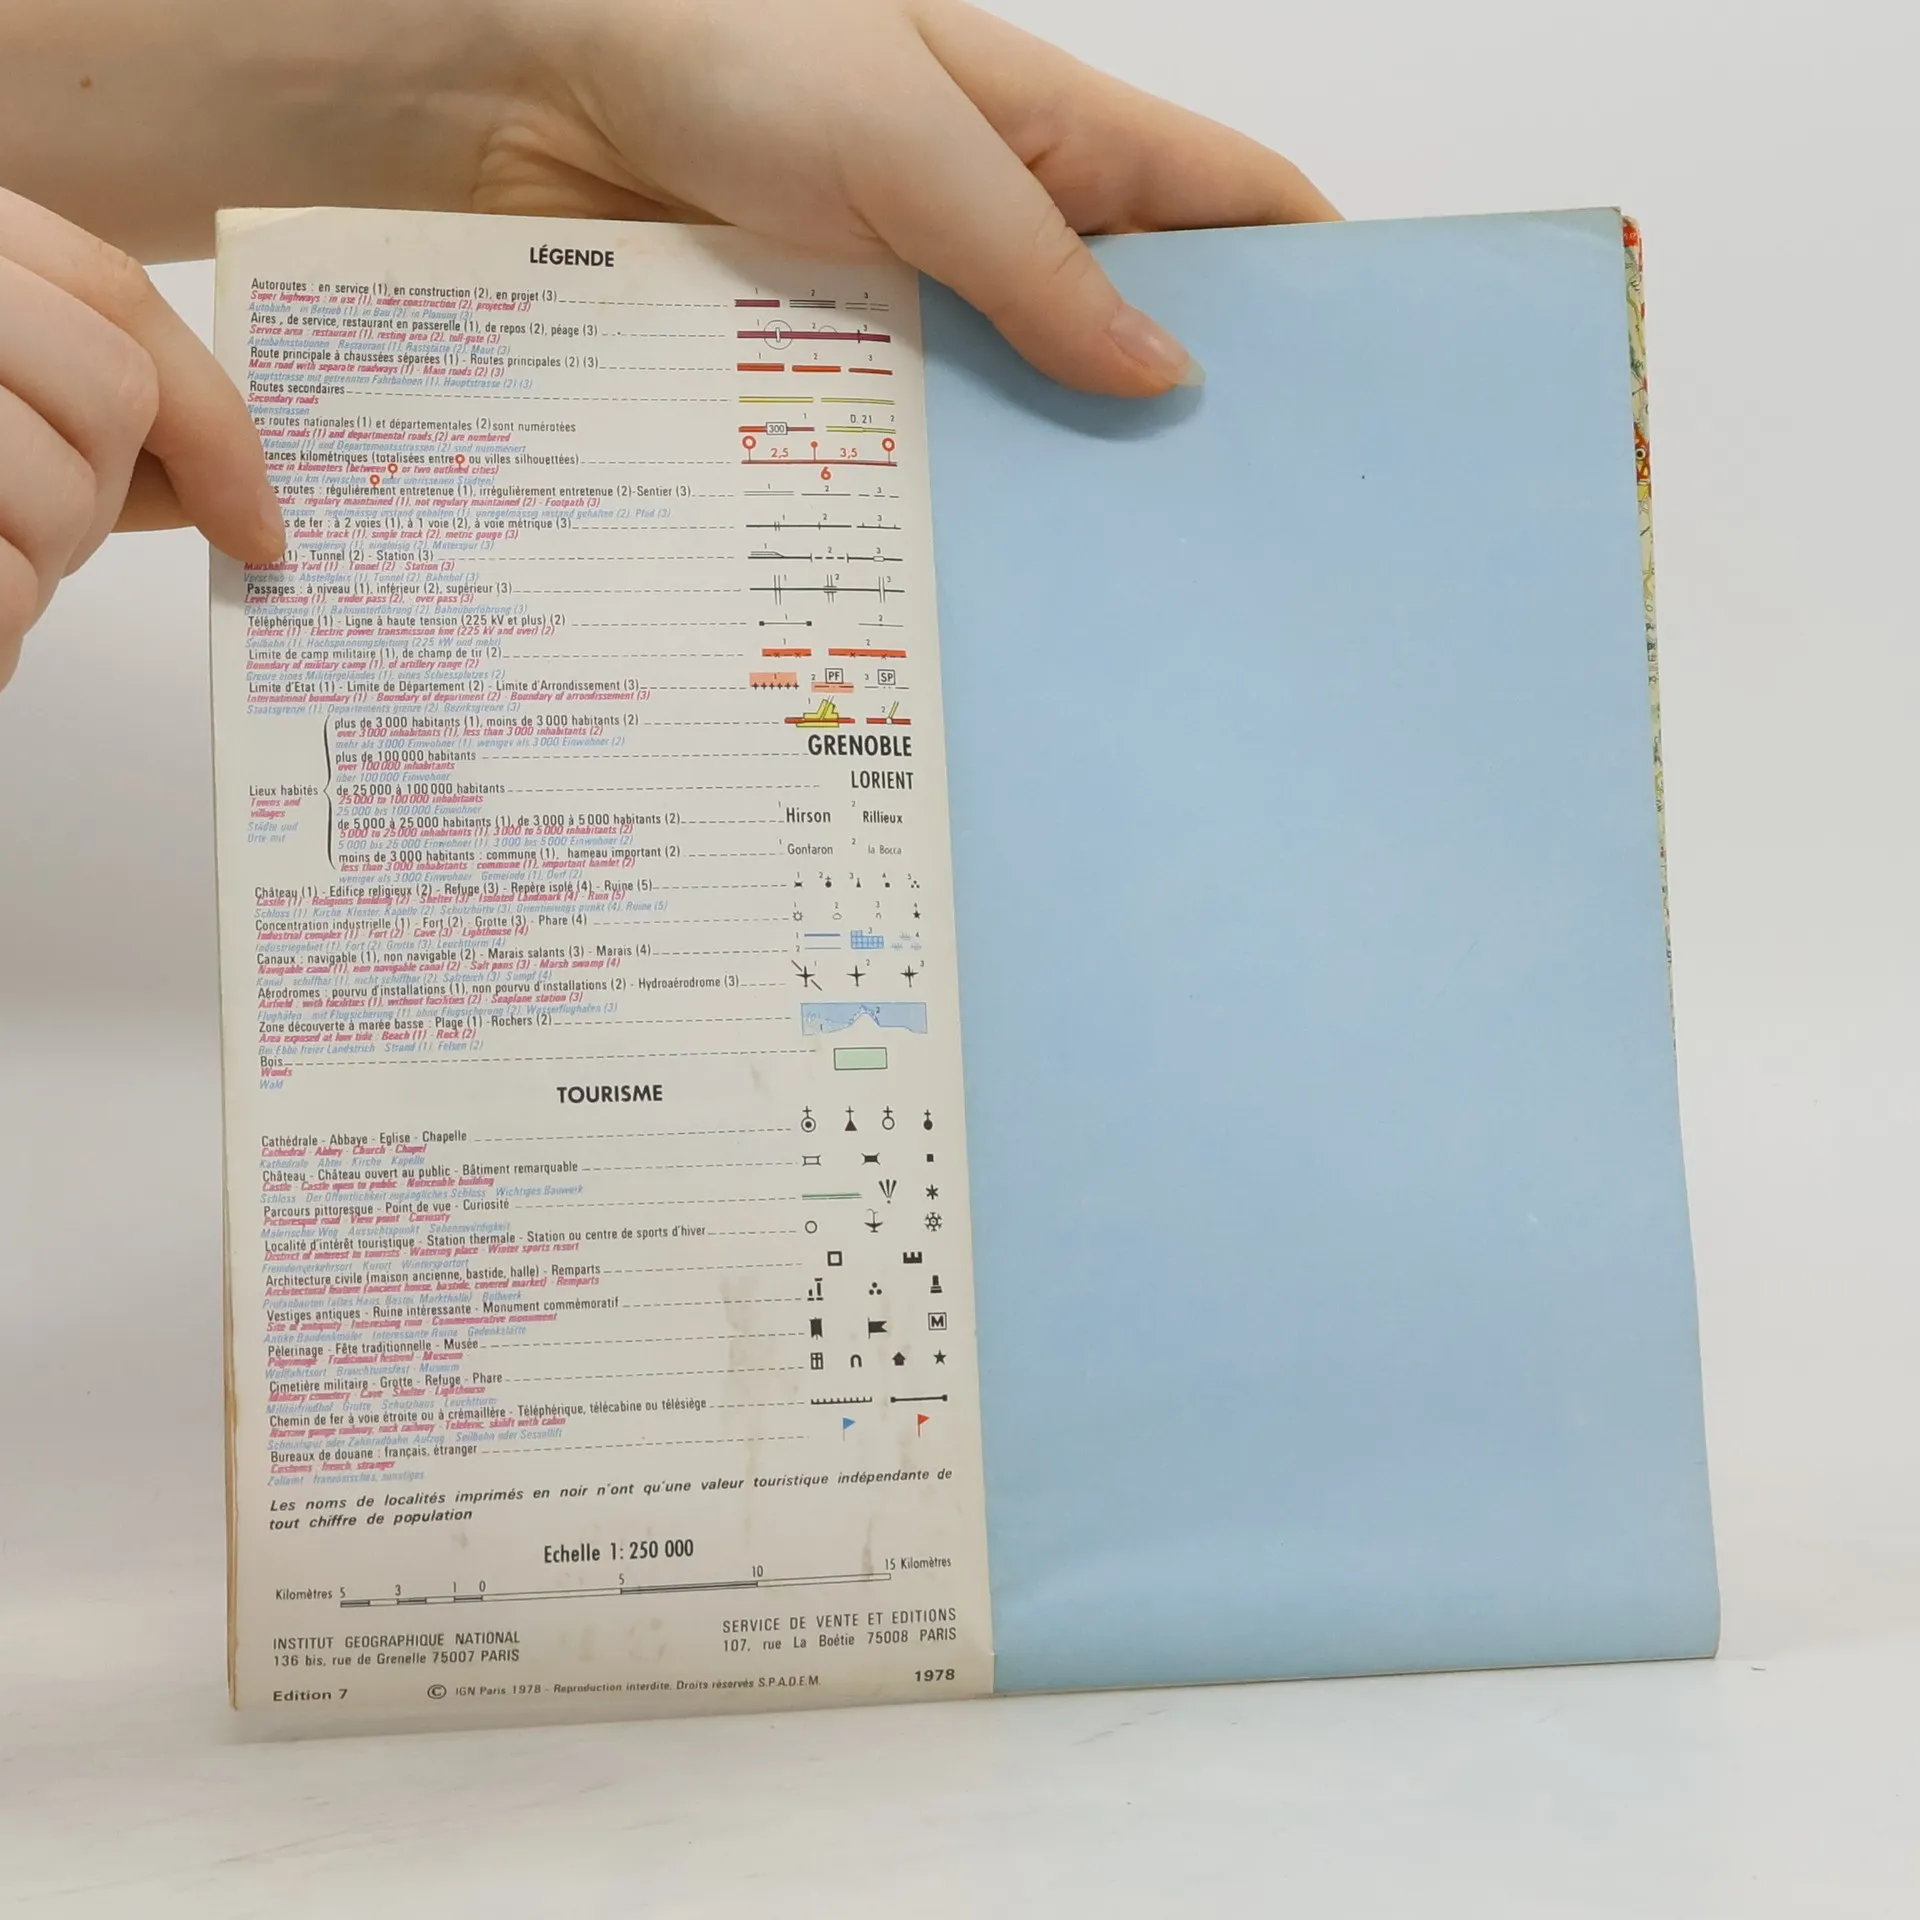 LÉGENDE
Autoroutes : en service (1), en construction (2), en projet (3)
Super highways : in use (1), under construction (2), projected (3)
Autobahn in Betrieb (1), in Bau (2), in Planung (3)
1 2 3
Aires, de service, restaurant en passerelle (1), de repos (2), péage (3)
Service area : restaurant (1), resting area (2), toll-gate (3)
Autobahnstationen Restaurant (1), Raststätte (2), Maut (3)
1 2 3
Route principale à chaussées séparées (1) - Routes principales (2) (3)
Main road with separate roadways (1) - Main roads (2) (3)
Hauptstrasse mit getrennten Fahrbahnen (1), Hauptstrasse (2) (3)
1 2 3
Routes secondaires
Secondary roads
Nebenstrassen
es routes nationales (1) et départementales (2) sont numérotées
tional roads (1) and departmental roads (2) are numbered
National (1) und Departementsstrassen (2) sind nummeriert
300 1 D. 21 2
tances kilométriques (totalisées entre ou villes silhouettées)
nce in kilometers (between or two outlined cities)
nung in km (zwischen oder umrissenen Städten)
2,5 3,5
6
s routes : régulièrement entretenue (1), irrégulièrement entretenue (2) - Sentier (3)
ads : regulary maintained (1), not regulary maintained (2) - Footpath (3)
trassen regelmässig instand gehalten (1), unregelmässig instand gehalten (2), Pfad (3)
1 2 3
s de fer : à 2 voies (1), à 1 voie (2), à voie métrique (3)
: double track (1), single track (2), metric gauge (3)
zweigleisig (1), eingleisig (2), Meterspur (3)
1 2 3
(1) - Tunnel (2) - Station (3)
Marshalling Yard (1) - Tunnel (2) - Station (3)
Verschub u. Abstellgleis (1), Tunnel (2), Bahnhof (3)
1 2 3
Passages : à niveau (1), inférieur (2), supérieur (3)
Level crossing (1), - under pass (2), - over pass (3)
Bahnübergang (1), Bahnunterführung (2), Bahnüberführung (3)
1 2 3
Téléphérique (1) - Ligne à haute tension (225 kV et plus) (2)
Teleferic (1) - Electric power transmission line (225 kV and over) (2)
Seilbahn (1), Hochspannungsleitung (225 kW und mehr)
1 2
Limite de camp militaire (1), de champ de tir (2)
Boundary of military camp (1), of artillery range (2)
Grenze eines Militärgeländes (1), eines Schiessplatzes (2)
1 2
Limite d'Etat (1) - Limite de Département (2) - Limite d'Arrondissement (3)
International boundary (1) - Boundary of department (2) - Boundary of arrondissement (3)
Staatsgrenze (1), Departements grenze (2), Bezirksgrenze (3)
1 2 PF 3 SP
Lieux habités
Towns and
villages
Städte und
Orte mit
plus de 3 000 habitants (1), moins de 3 000 habitants (2)
over 3 000 inhabitants (1), less than 3 000 inhabitants (2)
mehr als 3000 Einwohner (1), weniger als 3000 Einwohner (2)
1 2
plus de 100 000 habitants
over 100 000 inhabitants
über 100 000 Einwohner
GRENOBLE
de 25 000 à 100 000 habitants
25 000 to 100 000 inhabitants
25 000 bis 100 000 Einwohner
LORIENT
de 5 000 à 25 000 habitants (1), de 3 000 à 5 000 habitants (2)
5 000 to 25 000 inhabitants (1), 3 000 to 5 000 inhabitants (2)
5 000 bis 25 000 Einwohner (1), 3 000 bis 5 000 Einwohner (2)
1 Hirson 2 Rillieux
moins de 3 000 habitants : commune (1), hameau important (2)
less than 3 000 inhabitants : commune (1), important hamlet (2)
weniger als 3000 Einwohner Gemeinde (1), Dorf (2)
1 Gonfaron 2 la Bocca
Château (1) - Edifice religieux (2) - Refuge (3) - Repère isolé (4) - Ruine (5)
Castle (1) - Religious building (2) - Shelter (3) - Isolated Landmark (4) - Ruin (5)
Schloss (1), Kirche, Kloster, Kapelle (2), Schutzhütte (3), Orientierungs punkt (4), Ruine (5)
1 2 3 4 5
Concentration industrielle (1) - Fort (2) - Grotte (3) - Phare (4)
Industrial complex (1) - Fort (2) - Cave (3) - Lighthouse (4)
Industriegebiet (1), Fort (2), Grotte (3), Leuchtturm (4)
1 2 3 4
Canaux : navigable (1), non navigable (2) - Marais salants (3) - Marais (4)
Navigable canal (1), non navigable canal (2) - Salt pans (3) - Marsh swamp (4)
Kanal schiffbar (1), nicht schiffbar (2), Salzteich (3), Sumpf (4)
1 2 3 4
Aérodromes : pourvu d'installations (1), non pourvu d'installations (2) - Hydroaérodrome (3)
Airfield : with facilities (1), without facilities (2) - Seaplane station (3)
Flughäfen mit Flugsicherung (1), ohne Flugsicherung (2), Wasserflughafen (3)
1 2 3
Zone découverte à marée basse : Plage (1) - Rochers (2)
Area exposed at low tide : Beach (1) - Rock (2)
Bei Ebbe freier Landstrich Strand (1), Felsen (2)
1 2
Bois
Woods
Wald
TOURISME
Cathédrale - Abbaye - Eglise - Chapelle
Cathedral - Abbey - Church - Chapel
Kathedrale Abtei Kirche Kapelle
Château - Château ouvert au public - Bâtiment remarquable
Castle - Castle open to public - Noticeable building
Schloss Der Öffentlichkeit zugängliches Schloss Wichtiges Bauwerk
Parcours pittoresque - Point de vue - Curiosité
Picturesque road - View point - Curiosity
Malerischer Weg Aussichtspunkt Sehenswürdigkeit
Localité d'intérêt touristique - Station thermale - Station ou centre de sports d'hiver
District of interest to tourists - Watering place - Winter sports resort
Fremdenverkehrsort Kurort Wintersportort
Architecture civile (maison ancienne, bastide, halle) - Remparts
Architectural feature (ancient house, bastide, covered market) - Remparts
Profanbauten (altes Haus, Bastei, Markthalle) Bollwerk
Vestiges antiques - Ruine intéressante - Monument commémoratif
Site of antiquity - Interesting ruin - Commemorative monument
Antike Baudenkmäler Interessante Ruine Gedenkstätte
Pèlerinage - Fête traditionnelle - Musée
Pilgrimage - Traditional festival - Museum
Wallfahrtsort Brauchtumsfest - Museum
M
Cimetière militaire - Grotte - Refuge - Phare
Military cemetery - Cave - Shelter - Lighthouse
Militärfriedhof Grotte Schutzhaus Leuchtturm
Chemin de fer à voie étroite ou à crémaillère - Téléphérique, télécabine ou télésiège
Narrow gauge railway, rack railway - Teleferic, skilift with cabin
Schmalspur oder Zahnradbahn Aufzug Seilbahn oder Sessellift
Bureaux de douane : français, étranger
Customs : french, stranger
Zollamt französisches, sonstiges
Les noms de localités imprimés en noir n'ont qu'une valeur touristique indépendante de
tout chiffre de population
Echelle 1: 250 000
Kilomètres 5 3 1 0 5 10 15 Kilomètres
INSTITUT GEOGRAPHIQUE NATIONAL
136 bis, rue de Grenelle 75007 PARIS
SERVICE DE VENTE ET EDITIONS
107, rue La Boétie 75008 PARIS
Edition 7
© IGN Paris 1978 - Reproduction interdite. Droits réservés S.P.A.D.E.M.
1978